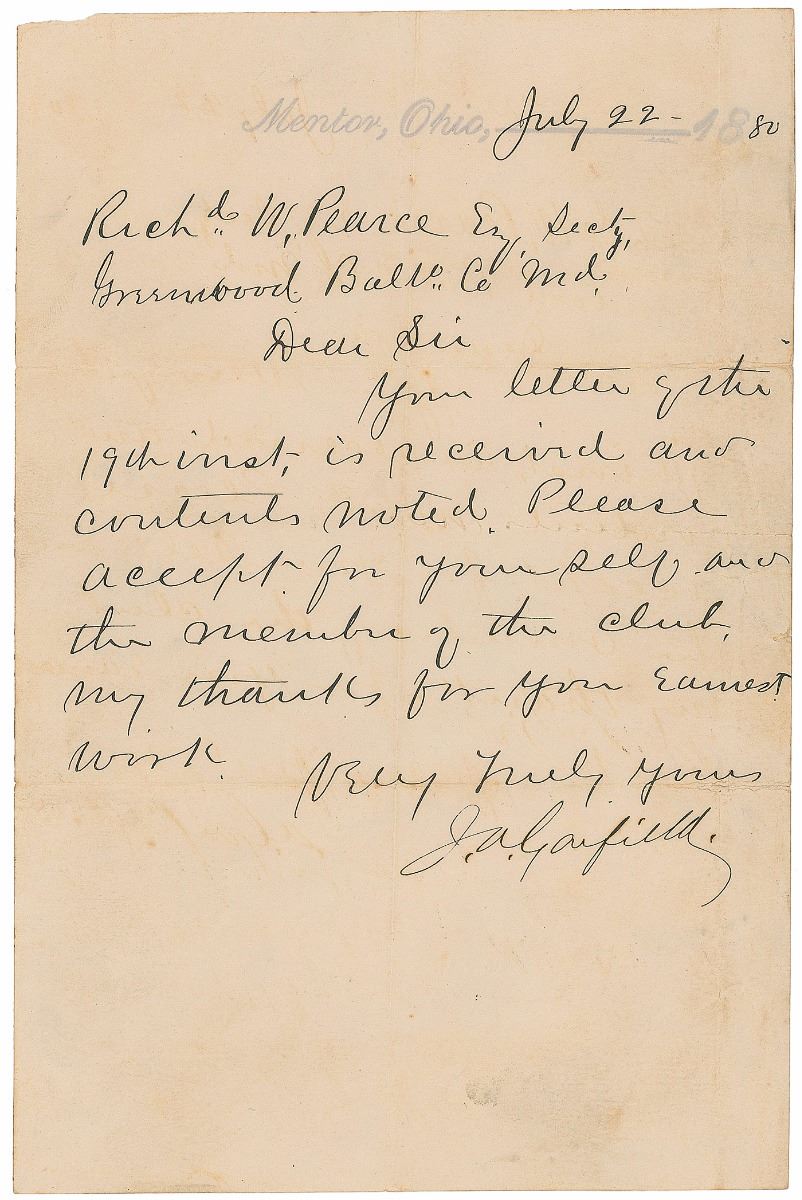 Mentor, Ohio, July 22- 1880
Richd. W. Pearce Esq, Secty,
Greenwood Balto. Co Md.
Dear Sir
Your letter of the
19th inst, is received and
contents noted. Please
accept for your self and
the member of the club,
my thanks for your earnest
work.
Very Truly Yours
J.A. Garfield.